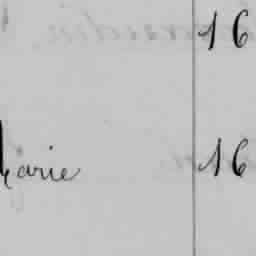 16
Marie 16